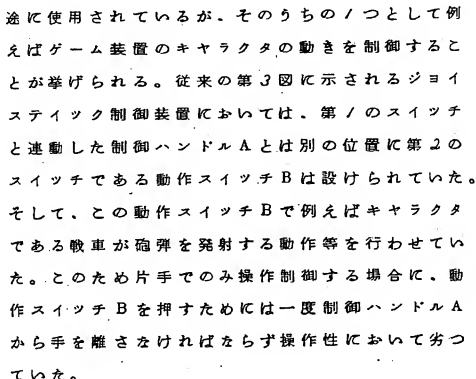 途に使用されているが、そのうちの1つとして例
えばゲーム装置のキャラクタの動きを制御するこ
とが挙げられる。従来の第3図に示されるジョイ
スティック制御装置においては、第1のスイッチ
と連動した制御ハンドルAとは別の位置に第2の
スイッチである動作スイッチBは設けられていた。
そして、この動作スイッチBで例えばキャラクタ
である戦車が砲弾を発射する動作等を行わせてい
た。このため片手でのみ操作制御する場合に、動
作スイッチBを押すためには一度制御ハンドルA
から手を離さなければならず操作性において劣つ
ていた。